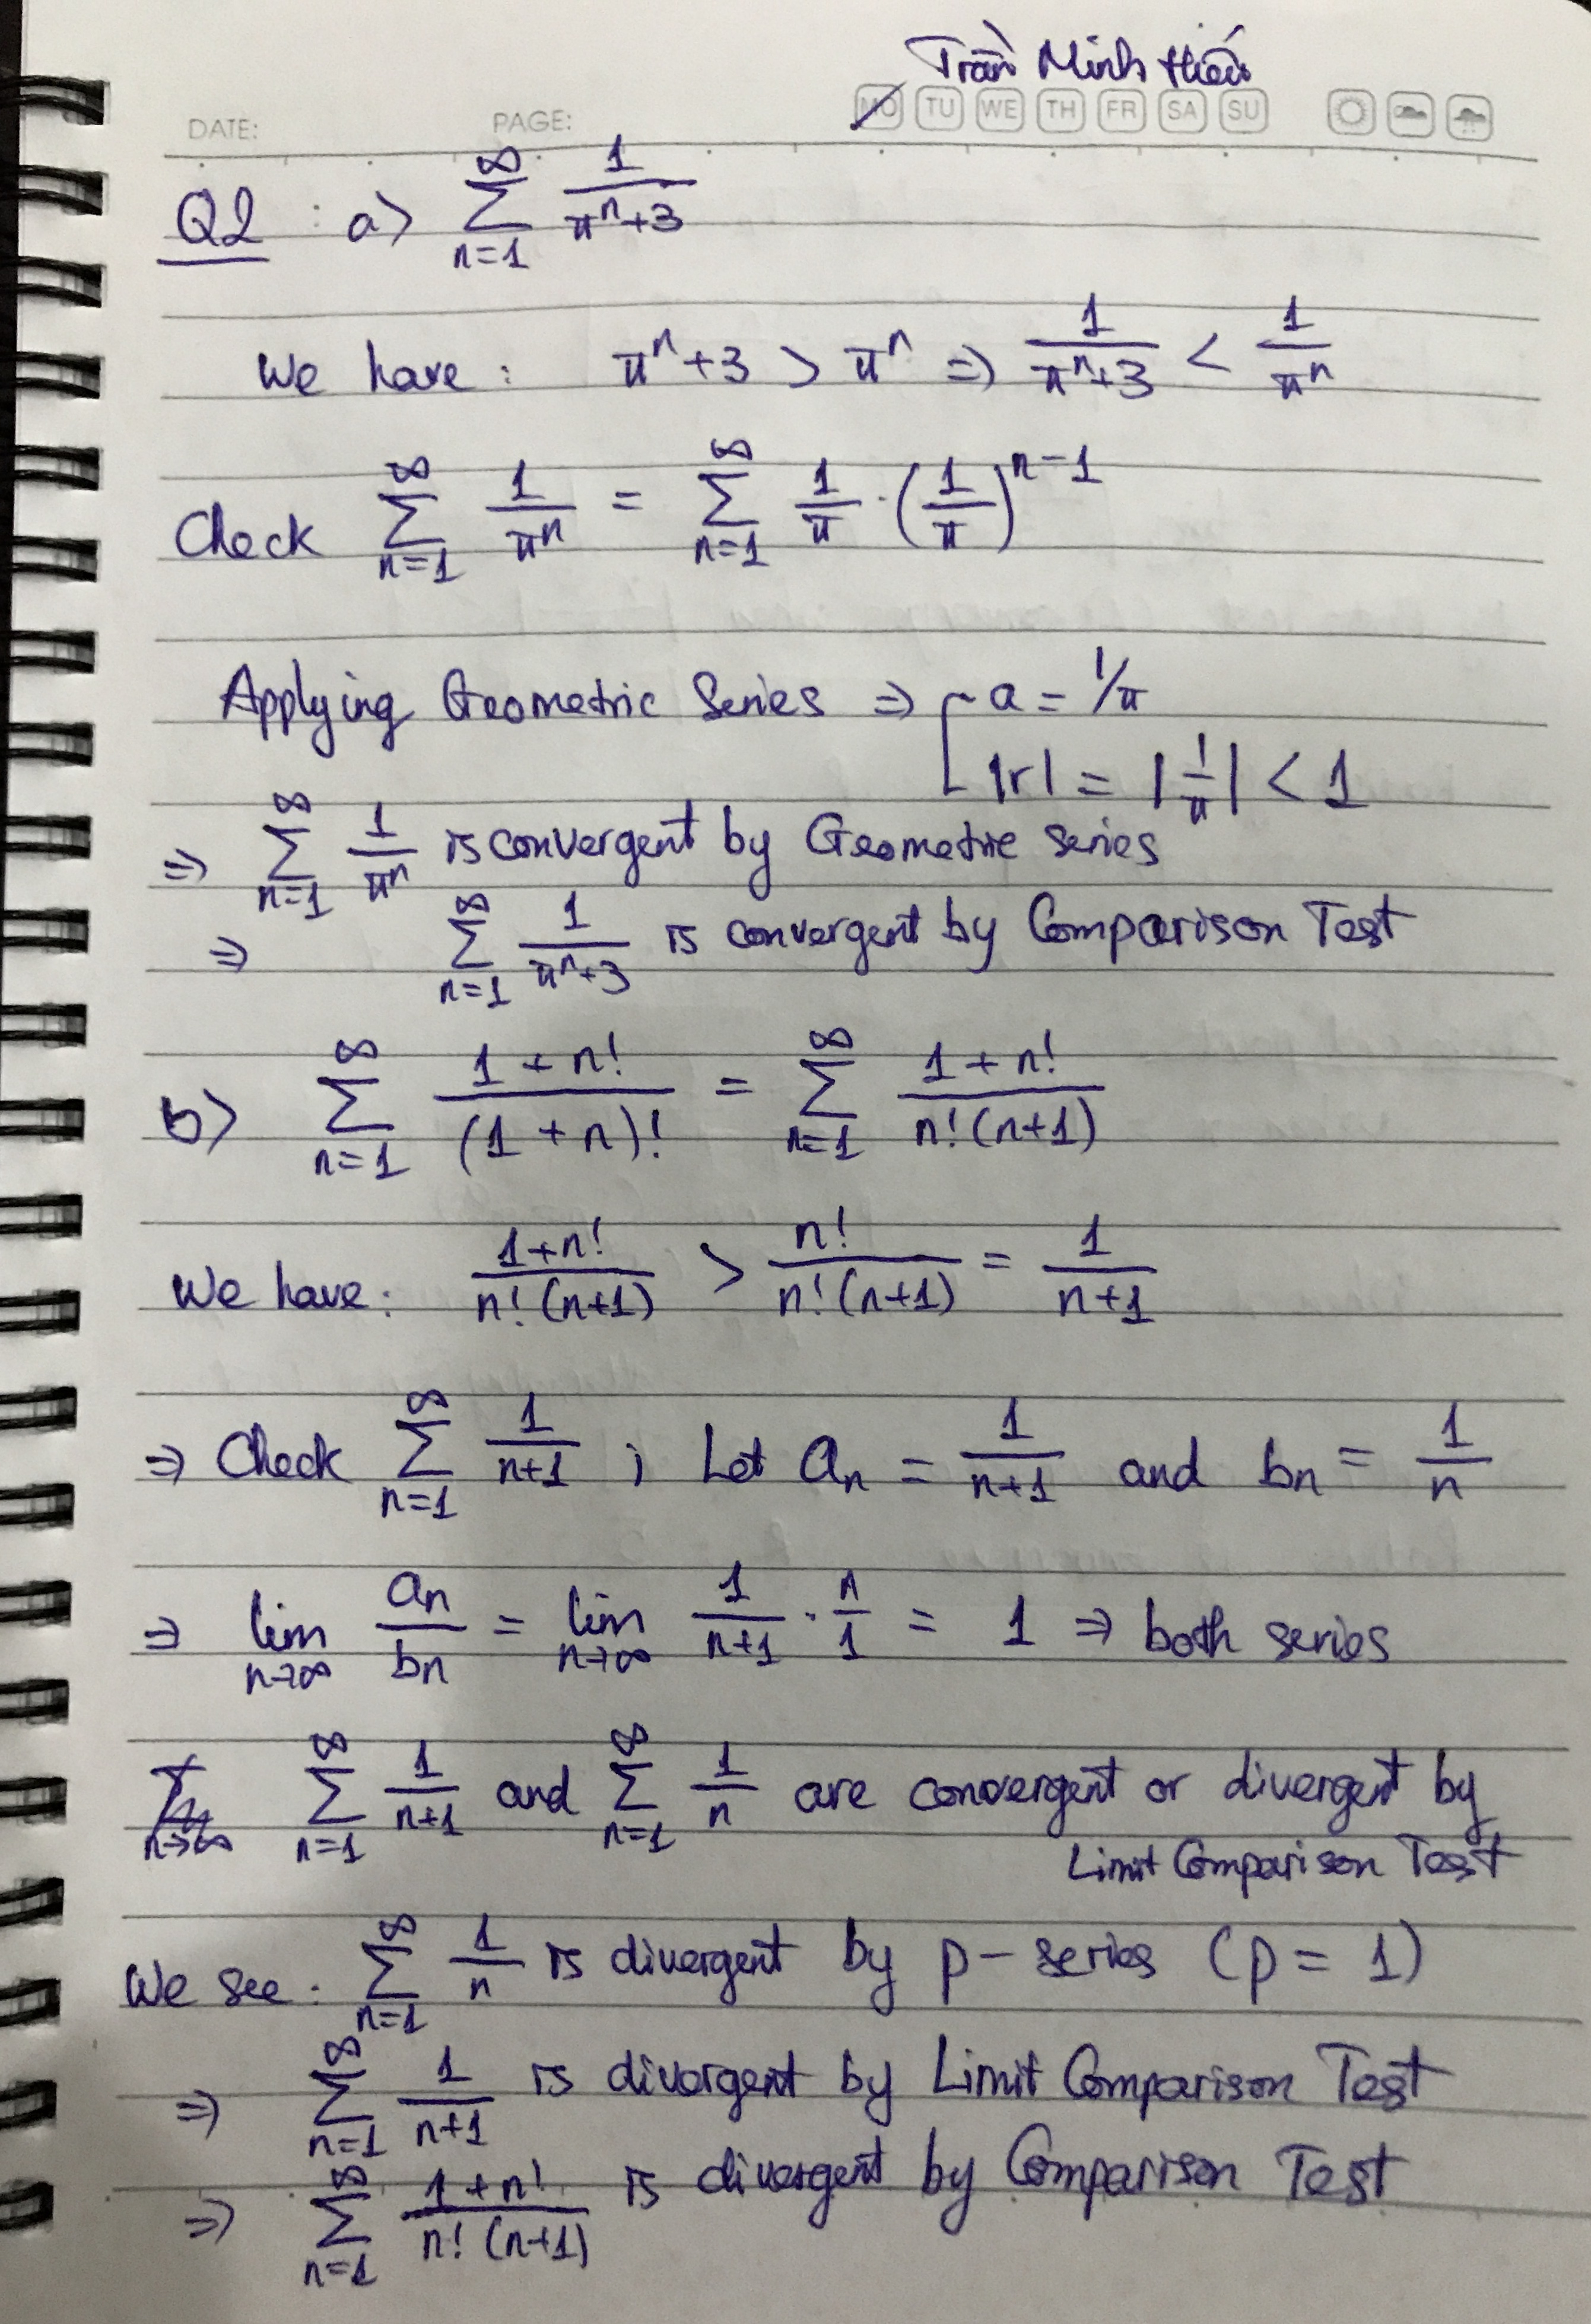 Trần Minh Hiếu
DATE: PAGE: MO TU WE TH FR SA SU
Q2 : a) ∑_{n=1}^{∞} 1/(π^n+3)
We have: π^n+3 > π^n ⇒ 1/(π^n+3) < 1/π^n
Check ∑_{n=1}^{∞} 1/π^n = ∑_{n=1}^{∞} 1/π · (1/π)^{n-1}
Applying Geometric Series ⇒ [ a = 1/π
|r| = |1/π| < 1
⇒ ∑_{n=1}^{∞} 1/π^n is convergent by Geometric series
⇒ ∑_{n=1}^{∞} 1/(π^n+3) is convergent by Comparison Test
b) ∑_{n=1}^{∞} (1+n!)/(1+n)! = ∑_{n=1}^{∞} (1+n!)/(n!(n+1))
We have: (1+n!)/(n!(n+1)) > n!/(n!(n+1)) = 1/(n+1)
⇒ Check ∑_{n=1}^{∞} 1/(n+1) ; Let a_n = 1/(n+1) and b_n = 1/n
⇒ lim_{n→∞} a_n/b_n = lim_{n→∞} 1/(n+1) · n/1 = 1 ⇒ both series
∑_{n=1}^{∞} 1/(n+1) and ∑_{n=1}^{∞} 1/n are convergent or divergent by
Limit Comparison Test
We see: ∑_{n=1}^{∞} 1/n is divergent by p-series (p = 1)
⇒ ∑_{n=1}^{∞} 1/(n+1) is divergent by Limit Comparison Test
⇒ ∑_{n=1}^{∞} (1+n!)/(n!(n+1)) is divergent by Comparison Test